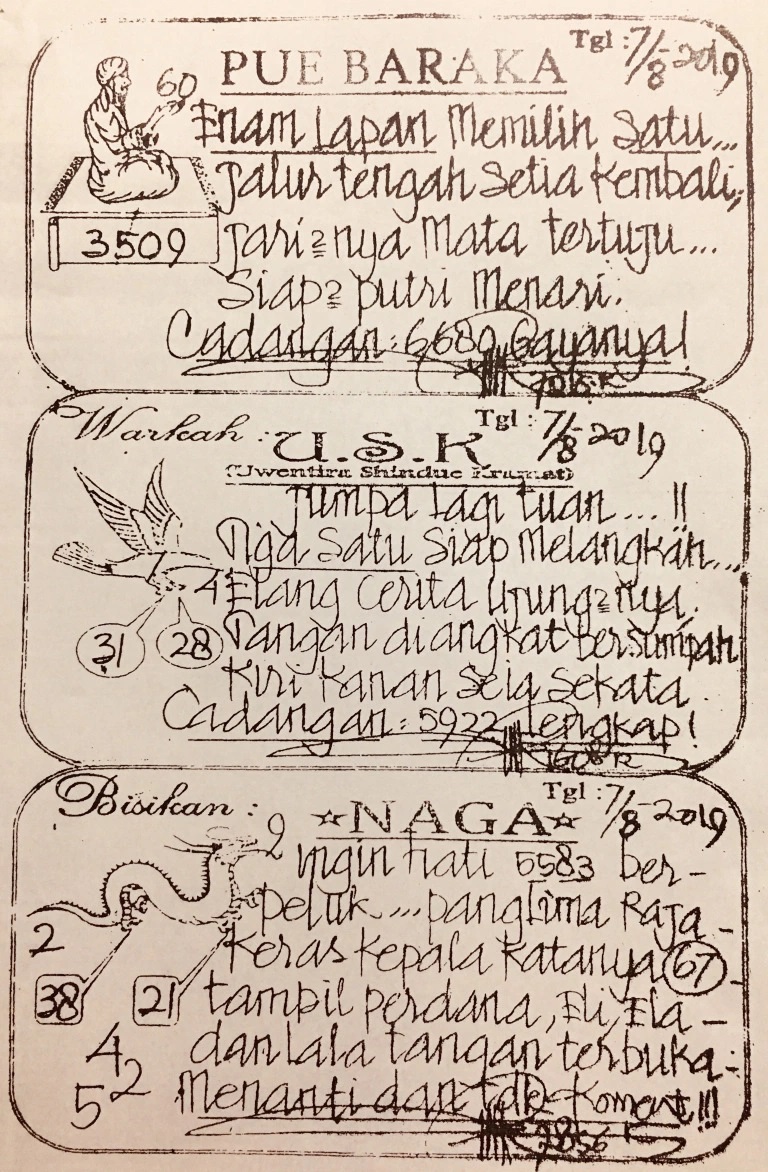 PUE BARAKA Tgl : 7/8-2019
60
Enam Lapan Memilih Satu...
Jalur tengah Setia Kembali,,
3509
Jari2nya Mata tertuju...
Siap2 putri Menari.
Cadangan : 6680 Gayanya!
Warkah : U.S.K Tgl : 7/8-2019
(Uwentira Shindue Kramat)
Jumpa Lagi tuan ... !!
Tiga Satu Siap Melangkah...
4 Elang Cerita Ujung2nya.
31 28
Tangan diangkat Bersumpah
Kiri Kanan Seia Sekata.
Cadangan : 5922 Lengkap!
Bisikan : ☆NAGA☆ Tgl : 7/8-2019
9
Ingin hati 5583 ber-
peluk ... panglima Raja-
2
Keras Kepala Katanya 67-
38 21
tampil perdana, Eli, Ela-
4
dan Lala tangan terbuka-
52
Menanti dan tdk Koment!!!